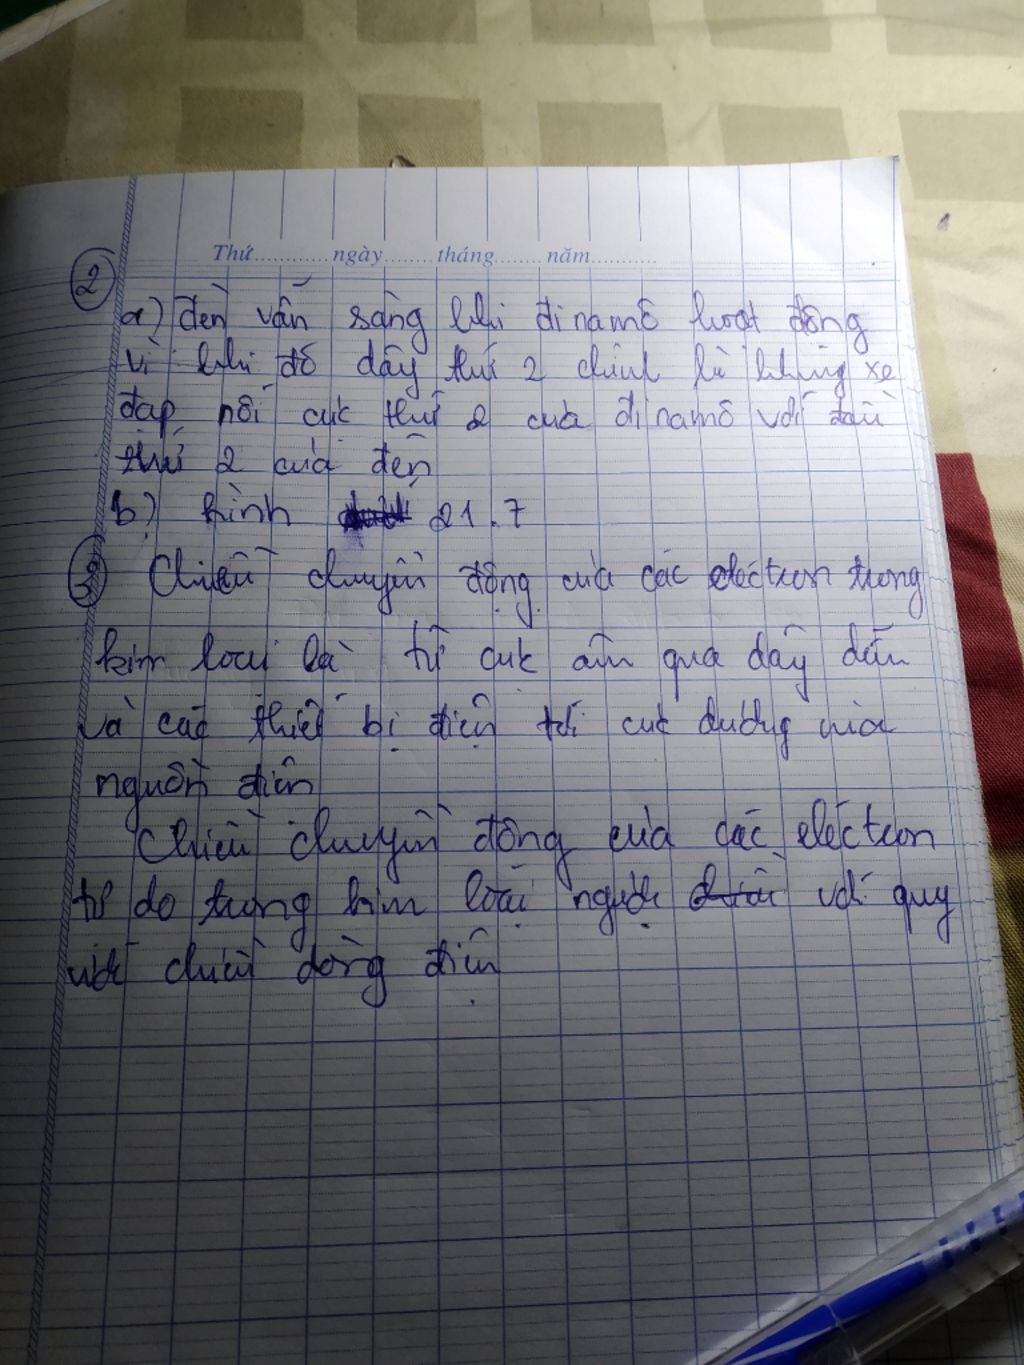 Thứ............ngày........tháng........năm............
②
a) đèn vẫn sáng khi đinamô hoạt động
vì khi đó dây thứ 2 chính là khung xe
đạp nối cực thứ 2 của đinamô với đầu
thứ 2 của đèn
b) hình 21.7
③ Chiều chuyển động của các eléctron trong
kim loại là từ cực âm qua dây dẫn
và các thiết bị điện tới cực dương của
nguồn điện
Chiều chuyển động của các eléctron
tự do trong kim loại ngược với quy
ước chiều dòng điện